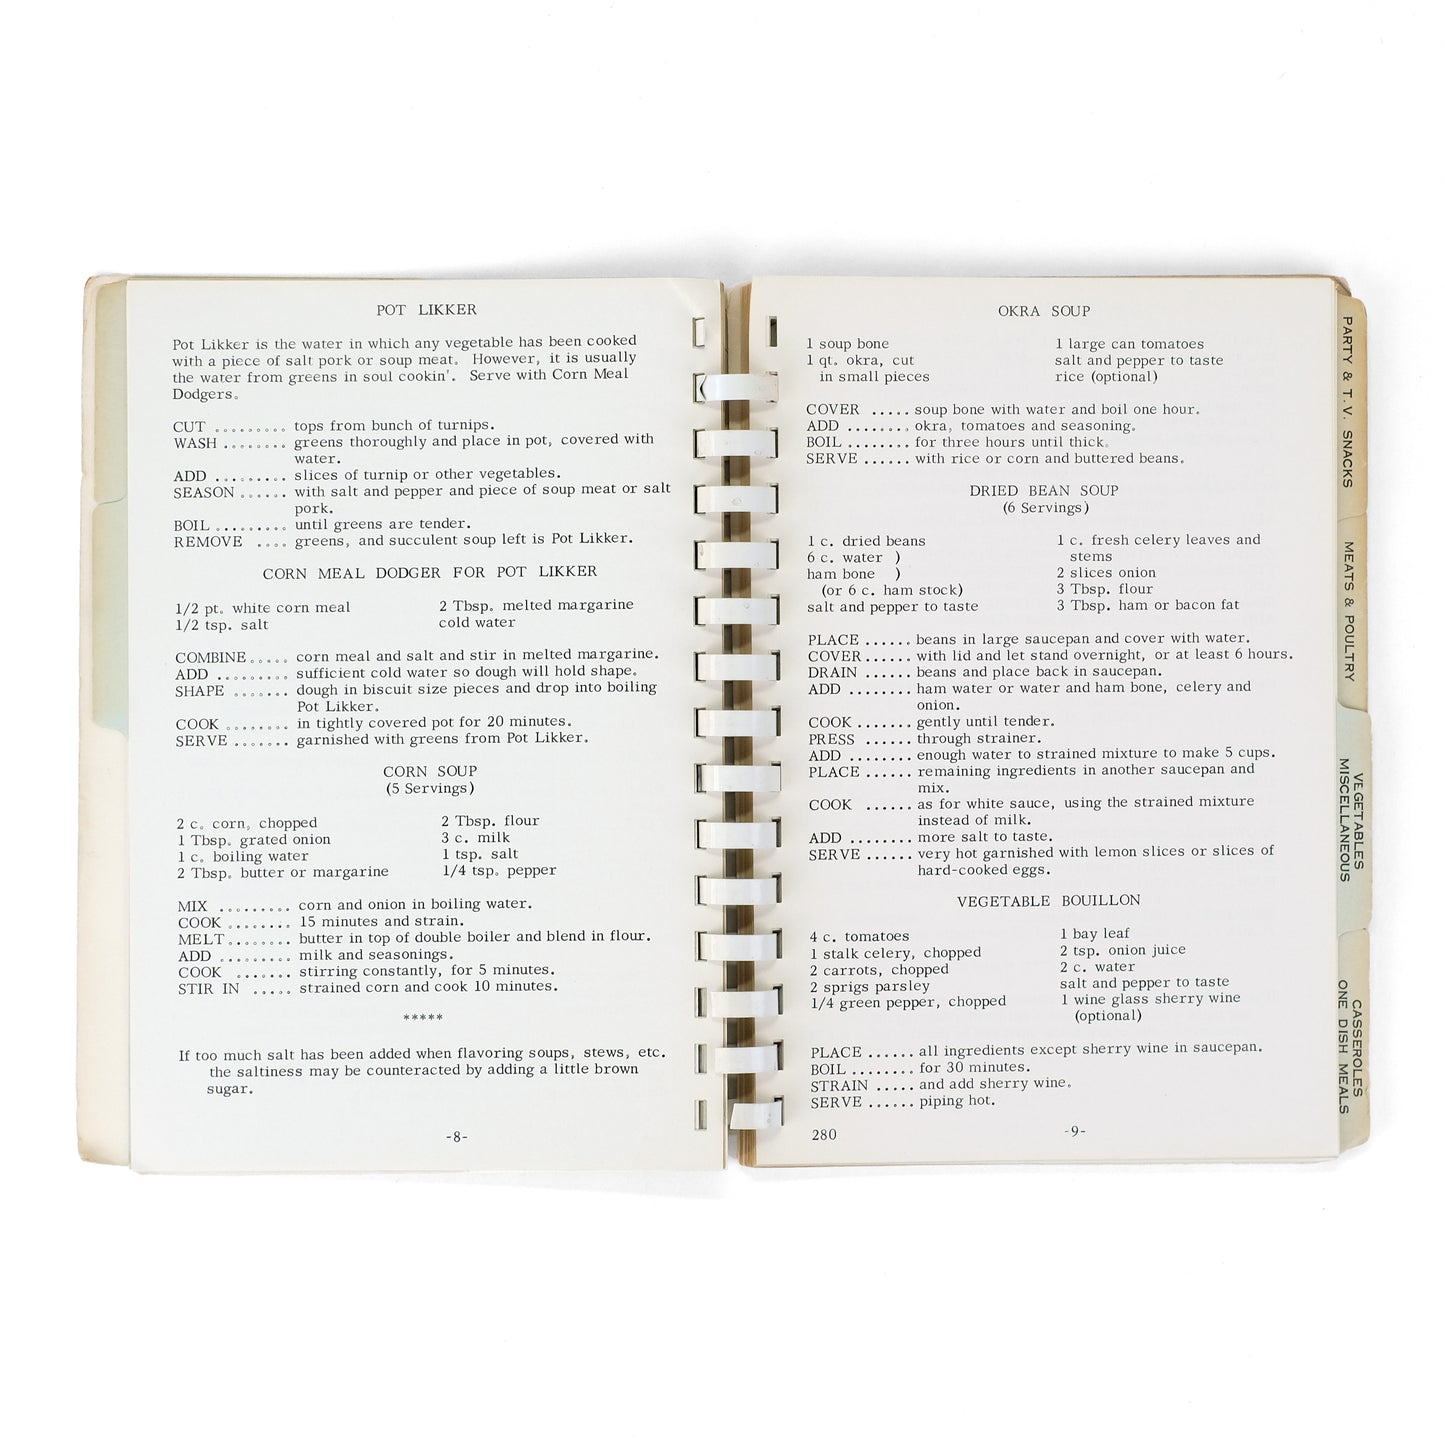 POT LIKKER
Pot Likker is the water in which any vegetable has been cooked
with a piece of salt pork or soup meat. However, it is usually
the water from greens in soul cookin'. Serve with Corn Meal
Dodgers.
CUT ......... tops from bunch of turnips.
WASH ........ greens thoroughly and place in pot, covered with
water.
ADD ......... slices of turnip or other vegetables.
SEASON ...... with salt and pepper and piece of soup meat or salt
pork.
BOIL ......... until greens are tender.
REMOVE .... greens, and succulent soup left is Pot Likker.
CORN MEAL DODGER FOR POT LIKKER
1/2 pt. white corn meal 2 Tbsp. melted margarine
1/2 tsp. salt cold water
COMBINE ..... corn meal and salt and stir in melted margarine.
ADD ......... sufficient cold water so dough will hold shape.
SHAPE ....... dough in biscuit size pieces and drop into boiling
Pot Likker.
COOK ........ in tightly covered pot for 20 minutes.
SERVE ....... garnished with greens from Pot Likker.
CORN SOUP
(5 Servings)
2 c. corn, chopped 2 Tbsp. flour
1 Tbsp. grated onion 3 c. milk
1 c. boiling water 1 tsp. salt
2 Tbsp. butter or margarine 1/4 tsp. pepper
MIX ......... corn and onion in boiling water.
COOK ........ 15 minutes and strain.
MELT ........ butter in top of double boiler and blend in flour.
ADD ......... milk and seasonings.
COOK ....... stirring constantly, for 5 minutes.
STIR IN ..... strained corn and cook 10 minutes.
*****
If too much salt has been added when flavoring soups, stews, etc.
the saltiness may be counteracted by adding a little brown
sugar.
-8-
OKRA SOUP
1 soup bone 1 large can tomatoes
1 qt. okra, cut salt and pepper to taste
in small pieces rice (optional)
COVER ..... soup bone with water and boil one hour.
ADD ........ okra, tomatoes and seasoning.
BOIL ........ for three hours until thick.
SERVE ...... with rice or corn and buttered beans.
DRIED BEAN SOUP
(6 Servings)
1 c. dried beans 1 c. fresh celery leaves and
6 c. water ) stems
ham bone ) 2 slices onion
(or 6 c. ham stock) 3 Tbsp. flour
salt and pepper to taste 3 Tbsp. ham or bacon fat
PLACE ...... beans in large saucepan and cover with water.
COVER ...... with lid and let stand overnight, or at least 6 hours.
DRAIN ...... beans and place back in saucepan.
ADD ........ ham water or water and ham bone, celery and
onion.
COOK ....... gently until tender.
PRESS ...... through strainer.
ADD ........ enough water to strained mixture to make 5 cups.
PLACE ...... remaining ingredients in another saucepan and
mix.
COOK ...... as for white sauce, using the strained mixture
instead of milk.
ADD ........ more salt to taste.
SERVE ...... very hot garnished with lemon slices or slices of
hard-cooked eggs.
VEGETABLE BOUILLON
4 c. tomatoes 1 bay leaf
1 stalk celery, chopped 2 tsp. onion juice
2 carrots, chopped 2 c. water
2 sprigs parsley salt and pepper to taste
1/4 green pepper, chopped 1 wine glass sherry wine
(optional)
PLACE ...... all ingredients except sherry wine in saucepan.
BOIL ........ for 30 minutes.
STRAIN ..... and add sherry wine.
SERVE ...... piping hot.
280 -9-
PARTY & T.V. SNACKS
MEATS & POULTRY
VEGETABLES
MISCELLANEOUS
CASSEROLES
ONE DISH MEALS